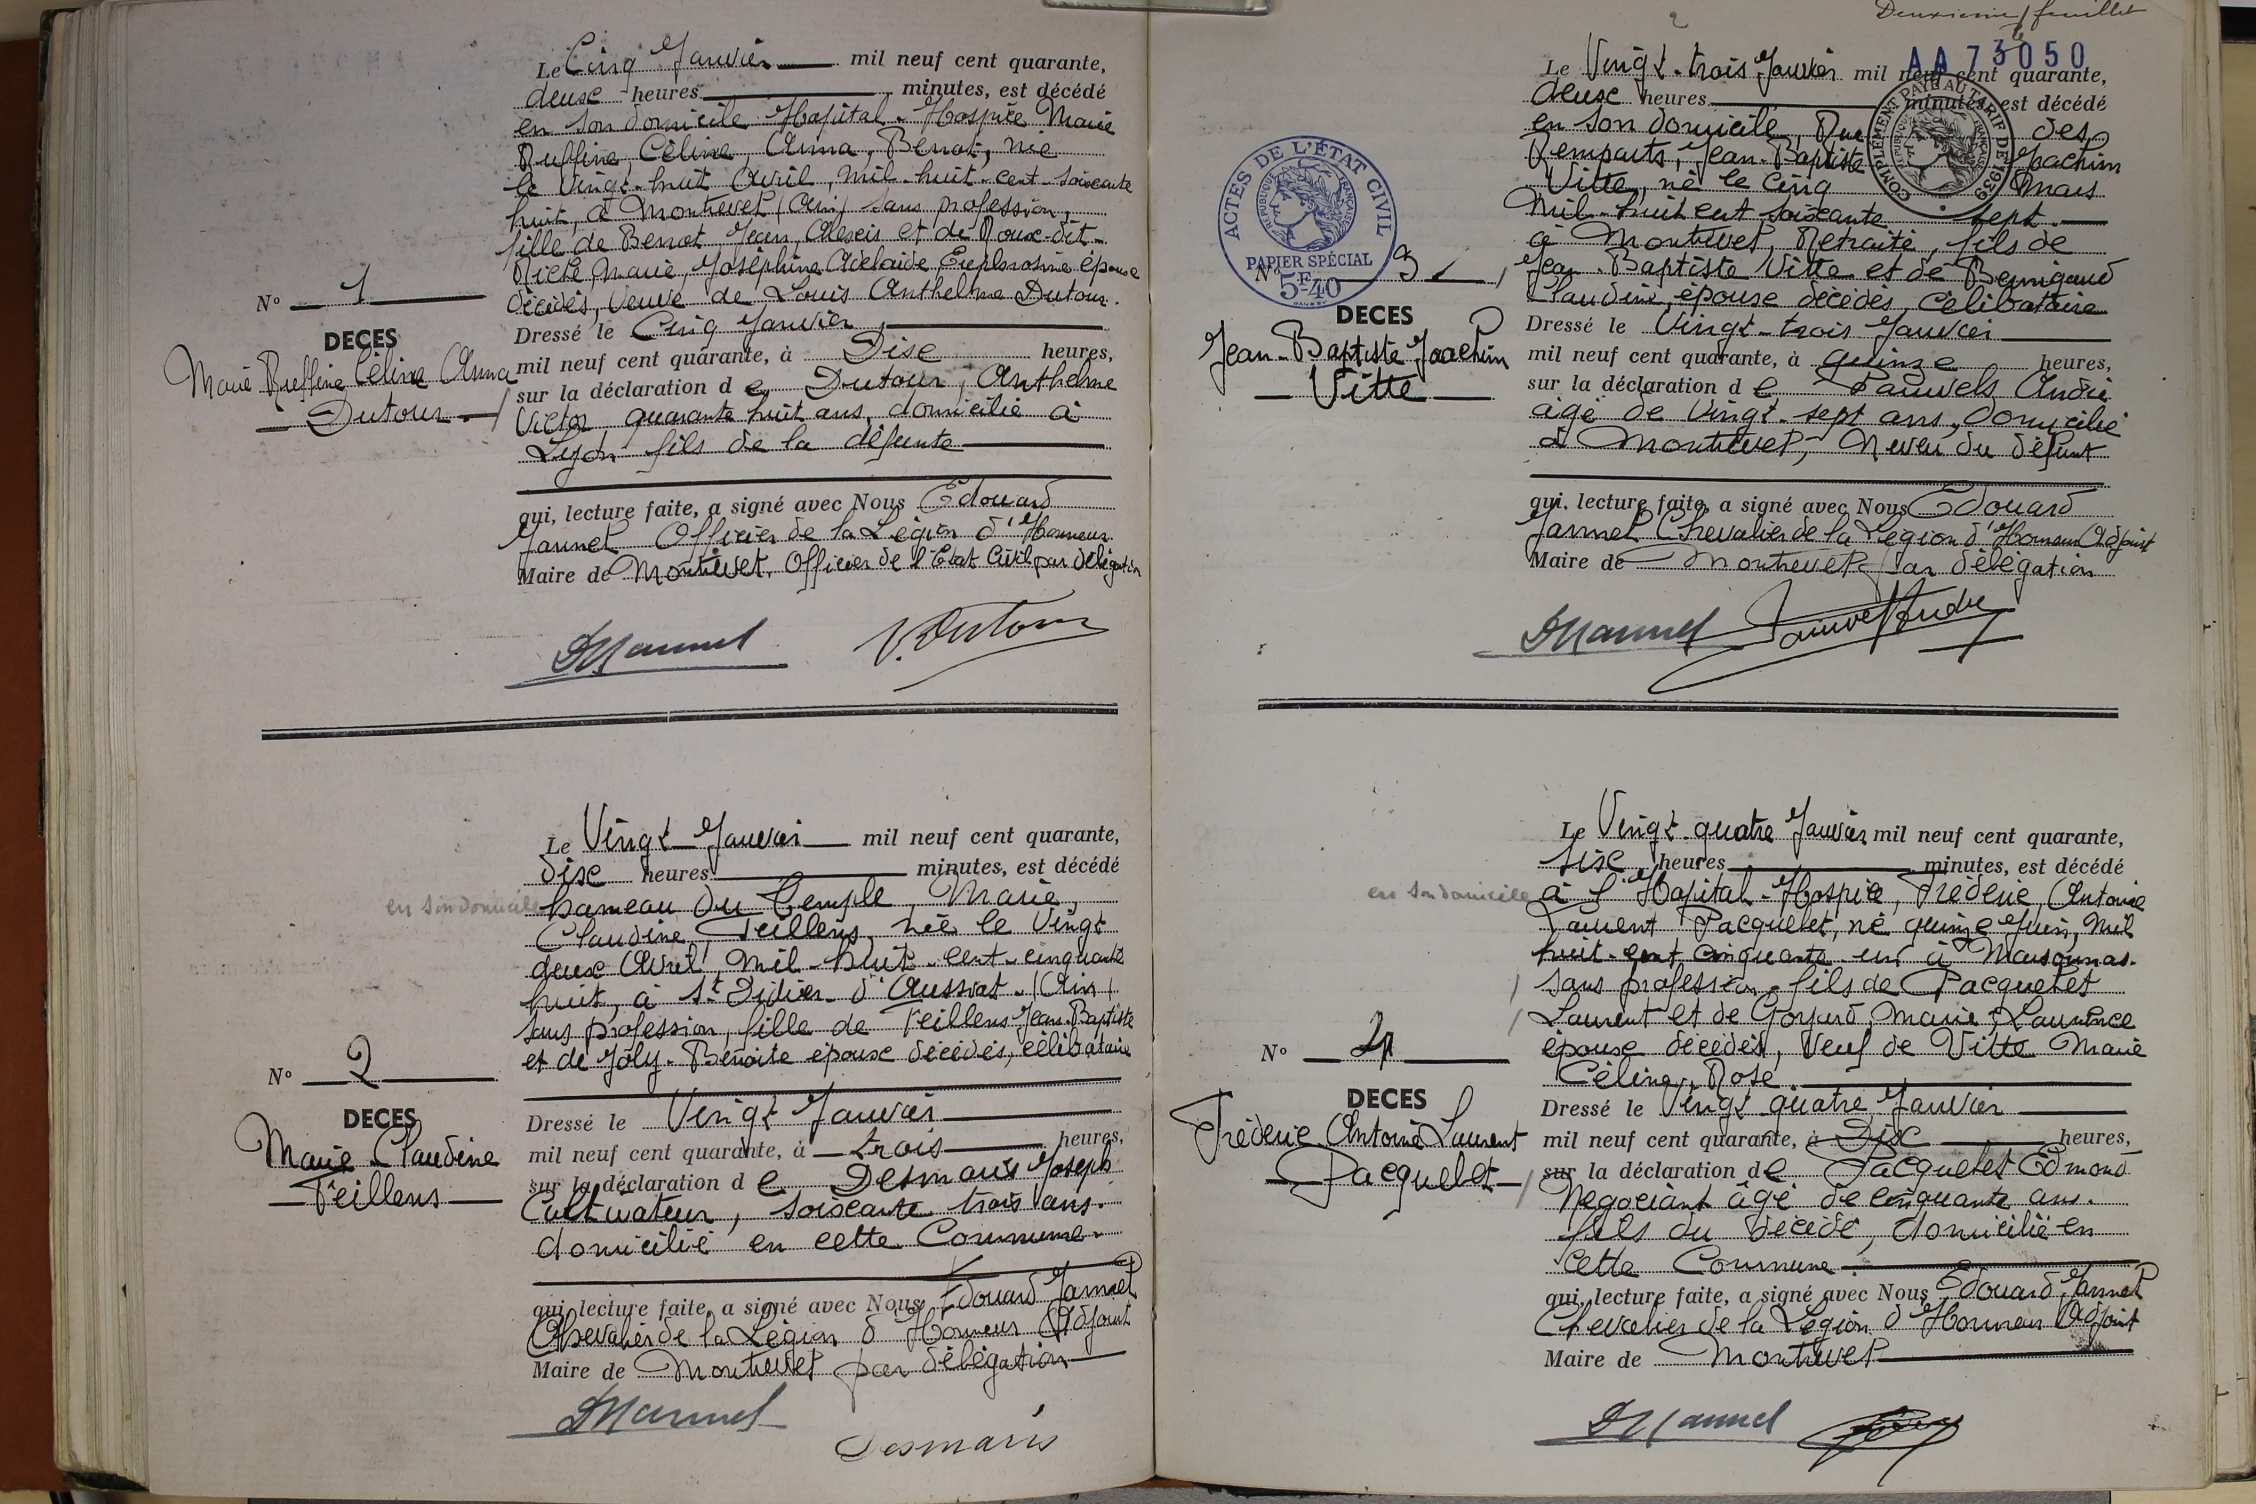 Le Cinq Janvier mil neuf cent quarante,
deux heures minutes, est décédé
en son domicile Hopital-Hospice Marie
Ruffine, Céline, Anna, Benat, née
le Vingt-huit Avril, mil-huit-cent-soixante
huit, à Montrevel (Ain) sans profession,
fille de Benat Jean, Alexis et de Roux-dit-
Riche, Marie, Joséphine Adelaide, Euphrosine épouse
décédés, veuve de Louis Anthelme Dutour.
N° 1
DECES
Marie Ruffine Céline Anna
Dutour
Dressé le Cinq Janvier
mil neuf cent quarante, à Dix heures,
sur la déclaration de Dutour, Anthelme
Victor quarante huit ans, domicilié à
Lyon fils de la défunte
qui, lecture faite, a signé avec Nous Edouard
Jannet Officier de la Légion d'Honneur
Maire de Montrevel, Officier de l'Etat Civil par délégation
V. Dutour
en son domicile
Le Vingt Janvier mil neuf cent quarante,
dix heures minutes, est décédé
hameau du Temple, Marie,
Claudine Feillens, née le Vingt
deux Avril, mil-huit-cent-cinquante
huit, à St Didier-d'Aussiat (Ain)
sans profession, fille de Feillens Jean-Baptiste
et de Joly-Benoite épouse décédés, célibataire
N° 2
DECES
Marie-Claudine
Feillens
Dressé le Vingt Janvier
mil neuf cent quarante, à trois heures,
sur la déclaration de Desmaris Joseph
Cultivateur, soixante trois ans.
domicilié en cette Commune
qui, lecture faite, a signé avec Nous Edouard Jannet
Chevalier de la Légion d'Honneur Adjoint
Maire de Montrevel par délégation
Desmaris
Deuxième feuillet
2
AA 73050
COMPLÉMENT PAYÉ AU TARIF DE 1939
RÉPUBLIQUE FRANÇAISE
ACTES DE L'ÉTAT CIVIL
RÉPUBLIQUE FRANÇAISE
PAPIER SPÉCIAL
5F40
Le Vingt-trois Janvier mil neuf cent quarante,
deux heures minutes, est décédé
en son domicile, Rue des
Remparts, Jean-Baptiste Joachim
Vitte, né le cinq Mars
Mil-huit cent soixante sept
à Montrevel, Retraité, fils de
Jean-Baptiste Vitte et de Bernigaud
Claudine, épouse décédés, célibataire
N° 3
DECES
Jean-Baptiste Joachim
Vitte
Dressé le Vingt-trois Janvier
mil neuf cent quarante, à quinze heures,
sur la déclaration de Pauwels André
âgé de Vingt-sept ans, domicilié
à Montrevel, Neveu du défunt
qui, lecture faite, a signé avec Nous Edouard
Jannet Chevalier de la Légion d'Honneur Adjoint
Maire de Montrevel par délégation
en son domicile
Le Vingt-quatre Janvier mil neuf cent quarante,
six heures minutes, est décédé
à l'Hopital-Hospice, Fréderic, Antoine
Laurent Pacquelet, né quinze Juin, Mil
huit-cent cinquante-un à Marsonnas.
sans profession, fils de Pacquelet
Laurent et de Goyard, Marie, Laurence
épouse décédés, Veuf de Vitte Marie
Céline, Rose
N° 4
DECES
Fréderic Antoine Laurent
Pacquelet
Dressé le Vingt quatre Janvier
mil neuf cent quarante, à Dix heures,
sur la déclaration de Pacquelet Edmond
Négociant âgé de cinquante ans.
fils du décédé, domicilié en
cette Commune
qui, lecture faite, a signé avec Nous Edouard Jannet
Chevalier de la Légion d'Honneur Adjoint
Maire de Montrevel